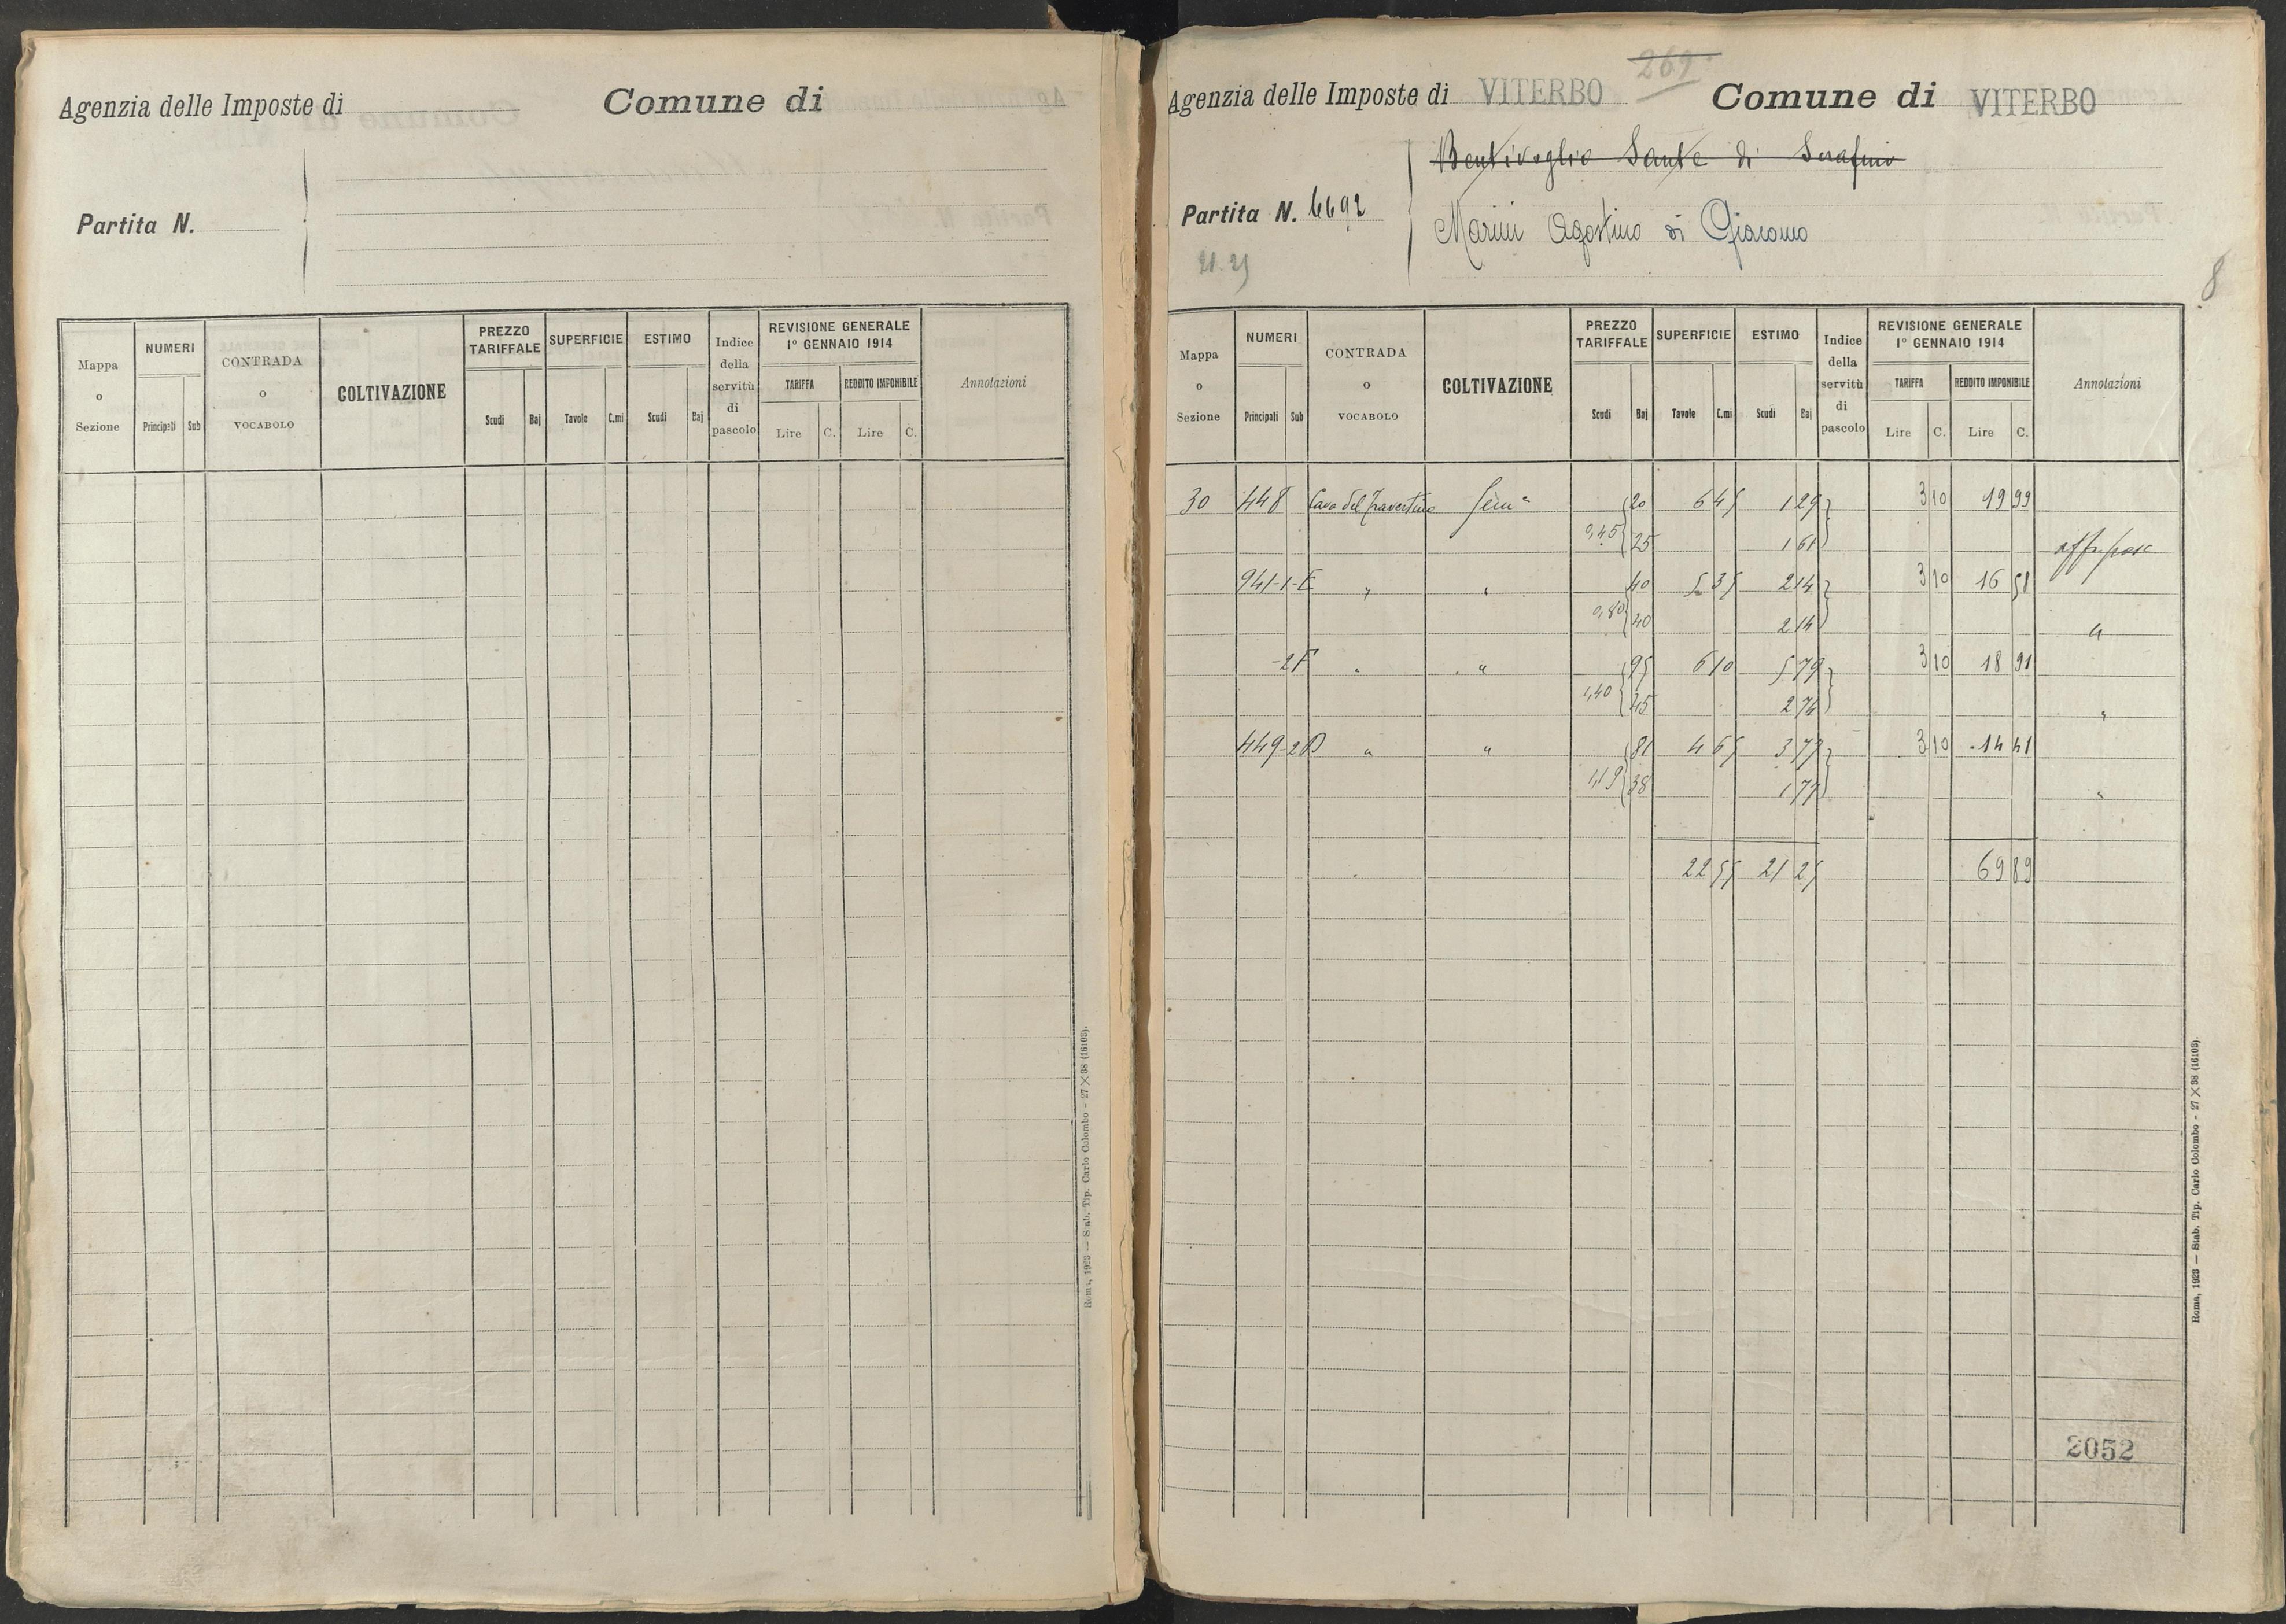 Agenzia delle Imposte di
Comune di
Partita N.
Mappa o Sezione
NUMERI
Principali
Sub
CONTRADA o VOCABOLO
COLTIVAZIONE
PREZZO TARIFFALE
Scudi
Baj
SUPERFICIE
Tavole
C.mi
ESTIMO
Scudi
Baj
Indice della servitù di pascolo
REVISIONE GENERALE
1° GENNAIO 1914
TARIFFA
Lire
C.
REDDITO IMPONIBILE
Lire
C.
Annotazioni
Roma, 1923 — Stab. Tip. Carlo Colombo - 27 × 38 (16103).
269
Agenzia delle Imposte di VITERBO Comune di VITERBO
Bentivoglio Sante di Serafino
Partita N. 6692
Marini Agostino di Giacomo
21.25
8
Mappa o Sezione
NUMERI
Principali
Sub
CONTRADA o VOCABOLO
COLTIVAZIONE
PREZZO TARIFFALE
Scudi
Baj
SUPERFICIE
Tavole
C.mi
ESTIMO
Scudi
Baj
Indice della servitù di pascolo
REVISIONE GENERALE
1° GENNAIO 1914
TARIFFA
Lire
C.
REDDITO IMPONIBILE
Lire
C.
Annotazioni
30 448 Cava del Travertino Sem° 20 6 45 1 29 3 10 19 99
0,45 25 1 61 aff. pasc
941-1-E " " 40 5 35 2 14 3 10 16 58
0,80 40 2 14 "
-2F " " 95 6 10 5 79 3 10 18 91
1,40 45 2 74 "
449-2D " " 81 4 65 3 77 3 10 14 41
1,19 38 1 77 "
22 55 21 25 69 89
2052
Roma, 1923 — Stab. Tip. Carlo Colombo - 27 × 38 (16103).